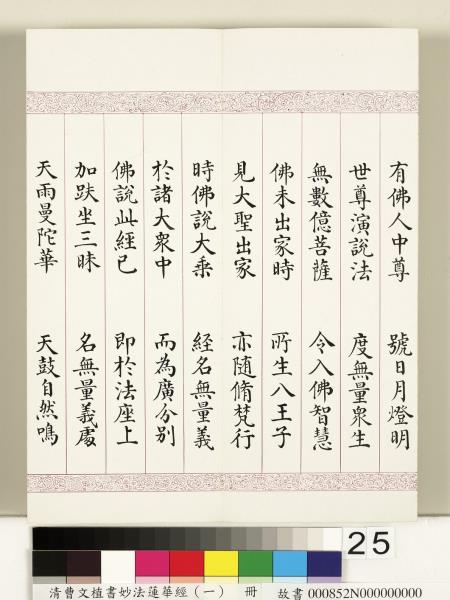 有佛人中尊 號日月燈明
世尊演說法 度無量衆生
無數億菩薩 令入佛智慧
佛未出家時 所生八王子
見大聖出家 亦隨脩梵行
時佛說大乘 經名無量義
於諸大衆中 而為廣分別
佛說此經已 即於法座上
加趺坐三昧 名無量義處
天雨曼陀華 天鼓自然鳴
25
清曹文植書妙法蓮華經(一) 冊 故書 000852N000000000